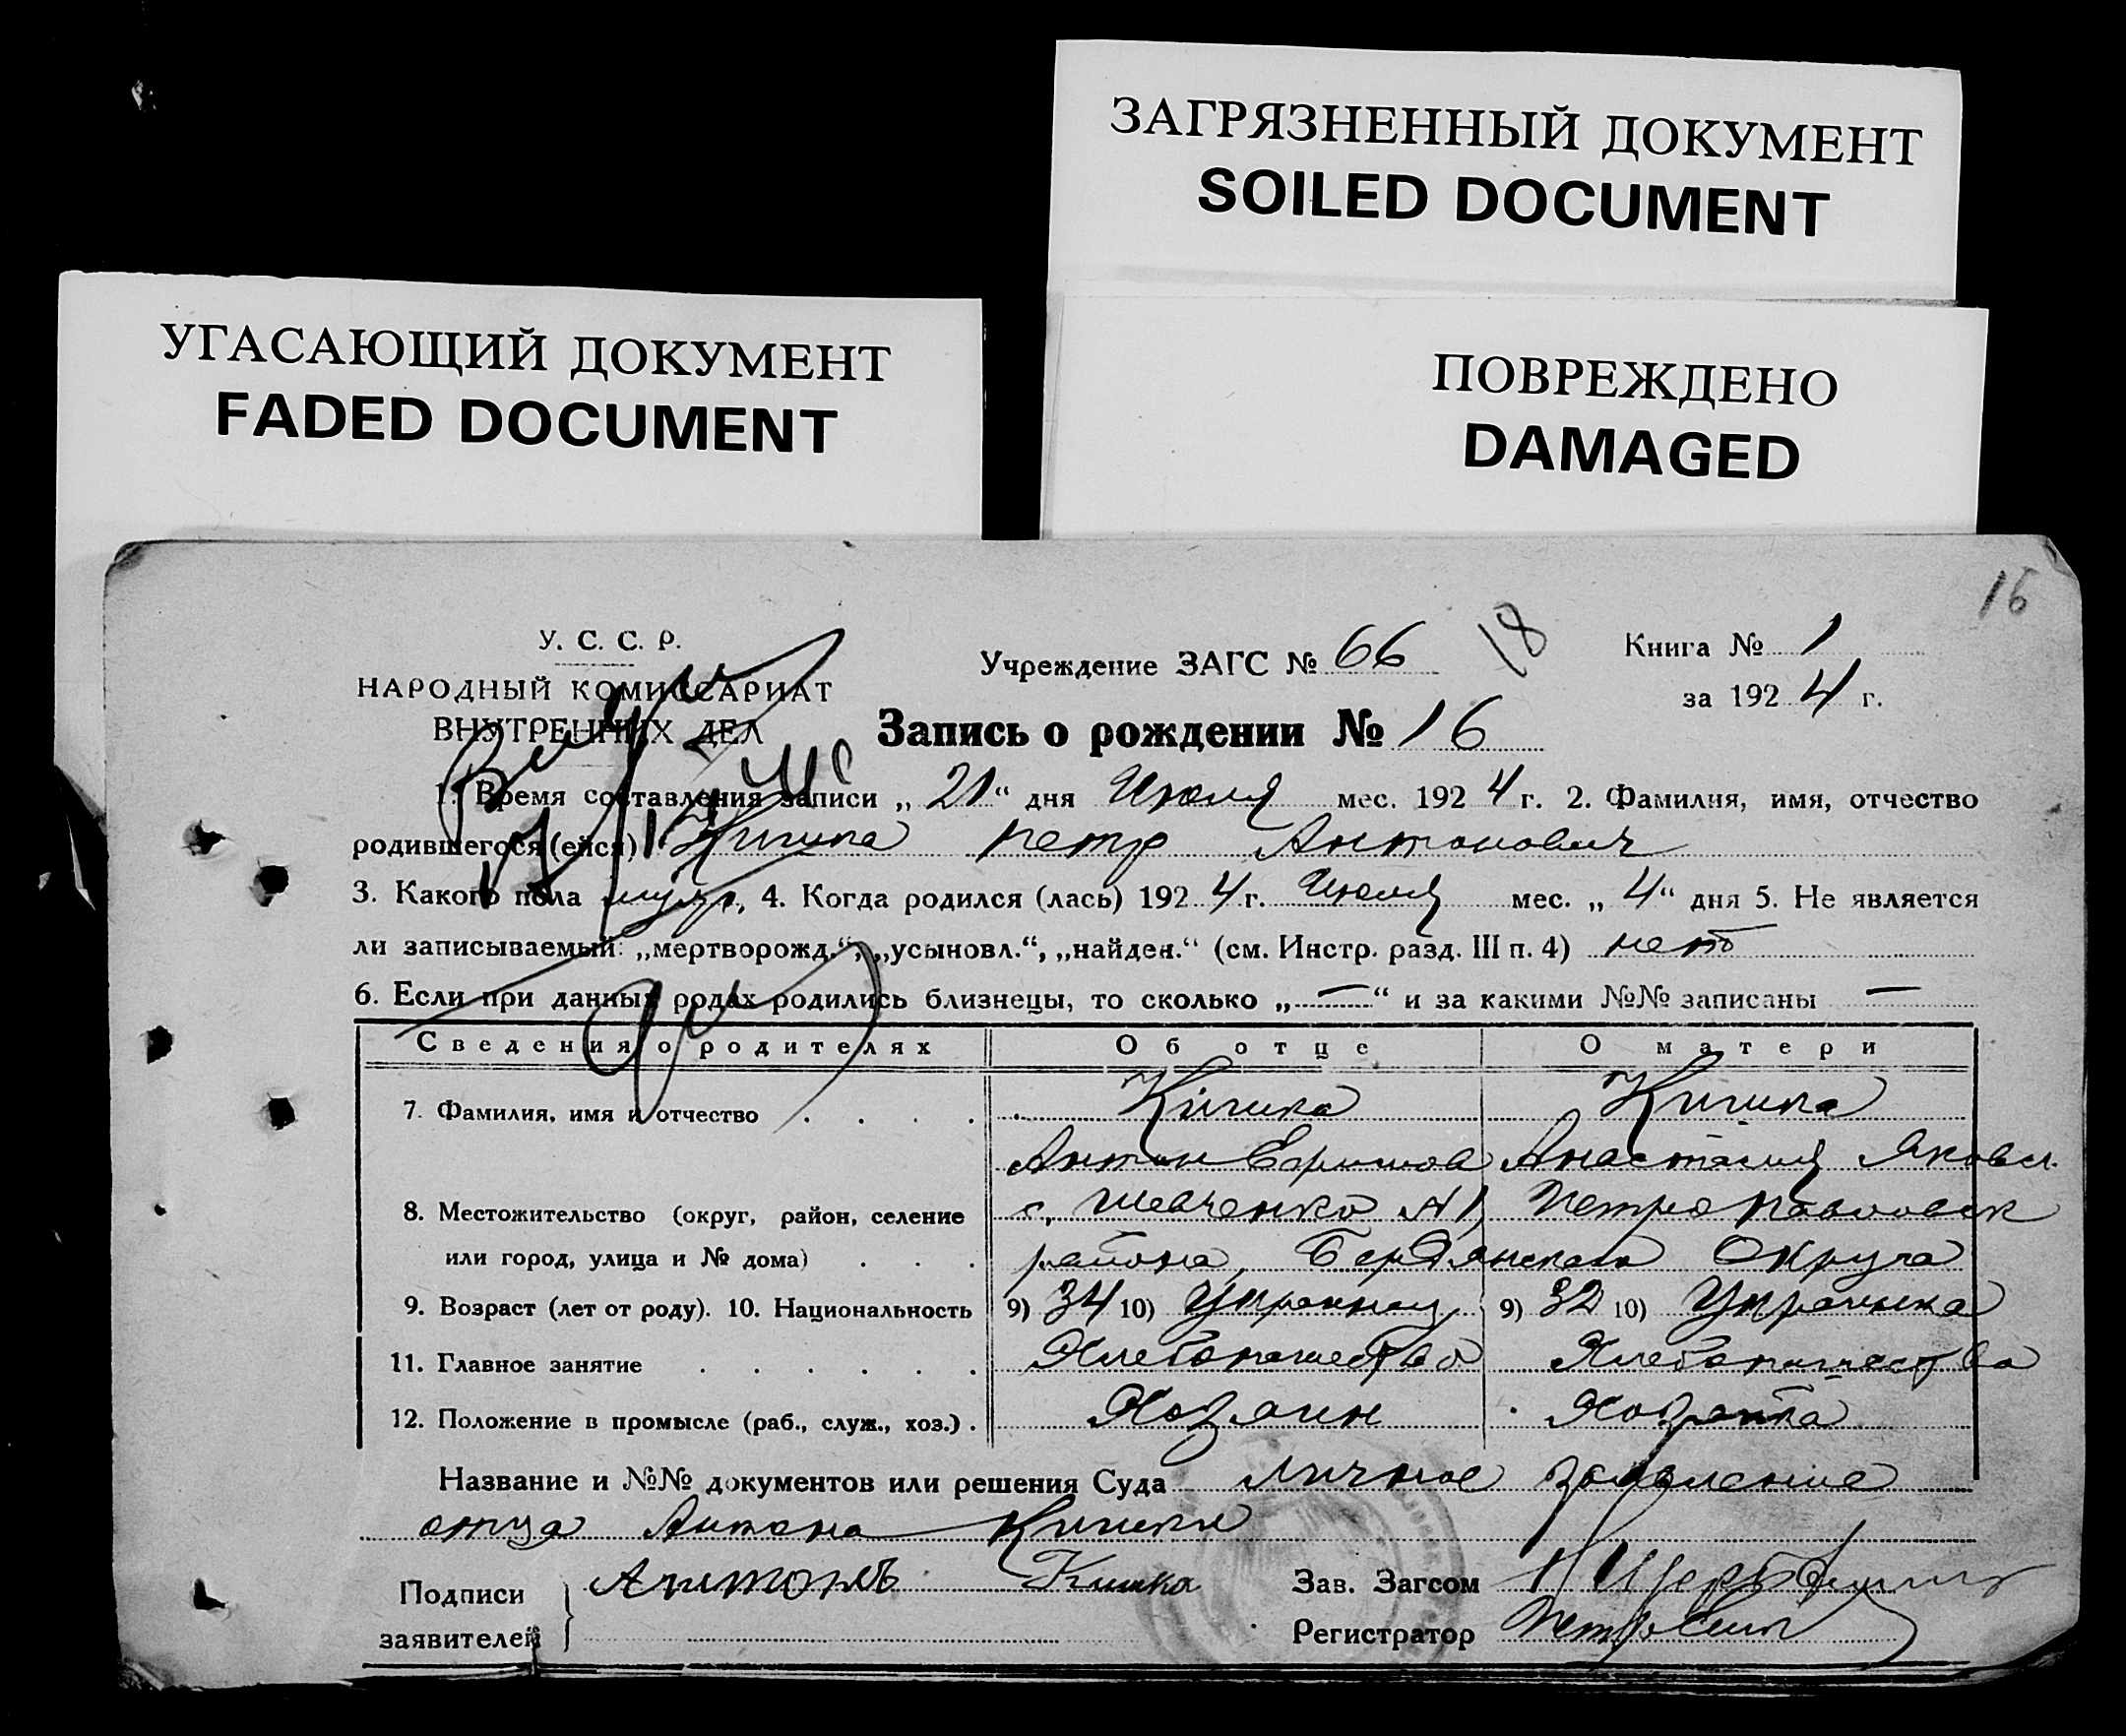 ЗАГРЯЗНЕННЫЙ ДОКУМЕНТ
SOILED DOCUMENT
УГАСАЮЩИЙ ДОКУМЕНТ
FADED DOCUMENT
ПОВРЕЖДЕНО
DAMAGED
16
У. С. С. Р.
НАРОДНЫЙ КОМИССАРИАТ
ВНУТРЕННИХ ДЕЛ
Учреждение ЗАГС № 66
18
Книга № 1
за 1924 г.
Запись о рождении № 16
1. Время составления записи „21“ дня Июля мес. 1924 г. 2. Фамилия, имя, отчество
родившегося (ейся) Кишка Петр Антонович
3. Какого пола муж., 4. Когда родился (лась) 1924 г. Июля мес. „4“ дня 5. Не является
ли записываемый: „мертворожд.“, „усыновл.“, „найден.“ (см. Инстр. разд. III п. 4) нет
6. Если при данных родах родились близнецы, то сколько „—“ и за какими №№ записаны —
Сведения о родителях Об отце О матери
7. Фамилия, имя и отчество Кишка Кишка
Антон Ефимов Анастасия Яковл.
8. Местожительство (округ, район, селение с. Шевченко №1, Петропавловск
или город, улица и № дома) района, Бердянского Округа
9. Возраст (лет от роду). 10. Национальность 9) 34 10) Украинец 9) 32 10) Украинка
11. Главное занятие Хлебопашество Хлебопашество
12. Положение в промысле (раб., служ., хоз.) Хозяин Хозяйка
Название и №№ документов или решения Суда Личное заявление
отца Антона Кишки
Подписи Антонъ Кишка Зав. Загсом
заявителей Регистратор